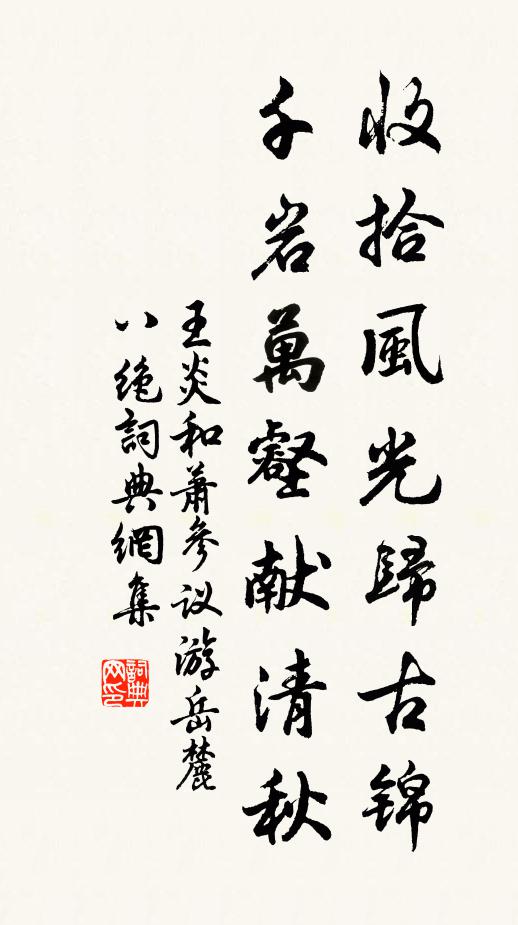 收拾風光歸古锦
千岩萬壑献清秋
王炎和萧参议游岳麓
八绝詞典網集
詞典网印